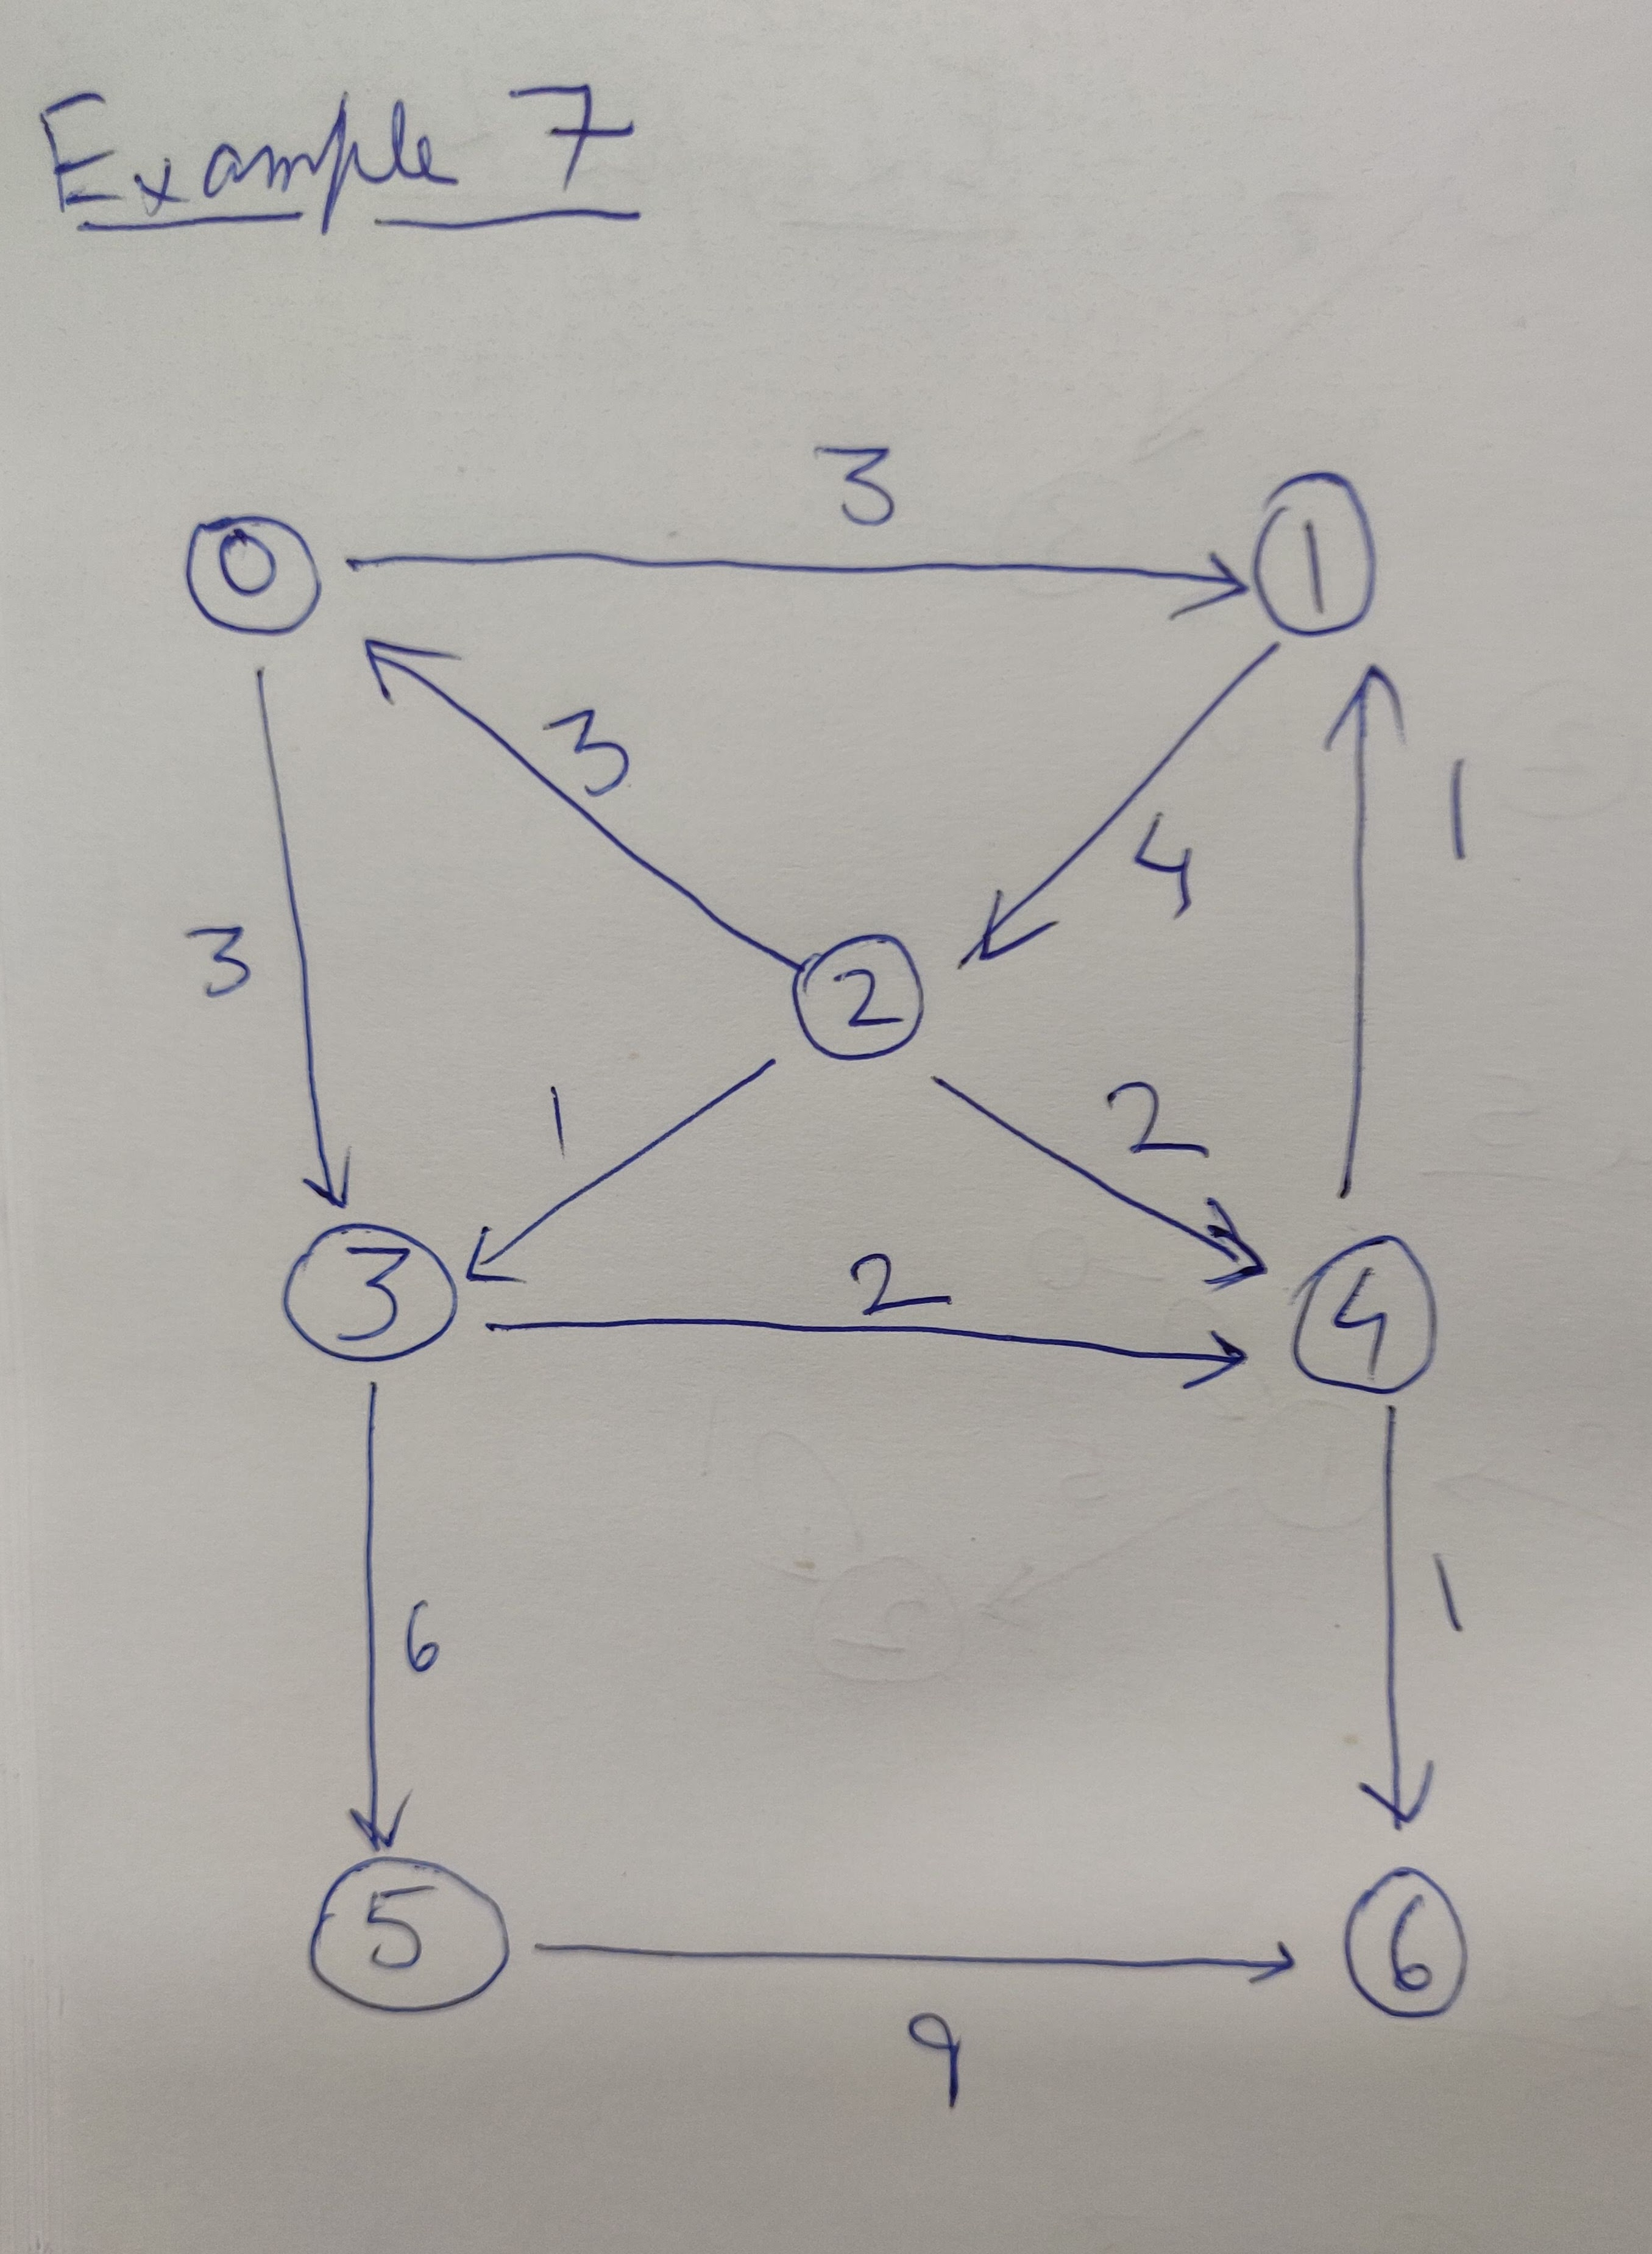 Example 7
3
0
1
3
4
1
3
2
1
2
3
2
4
6
1
5
6
9